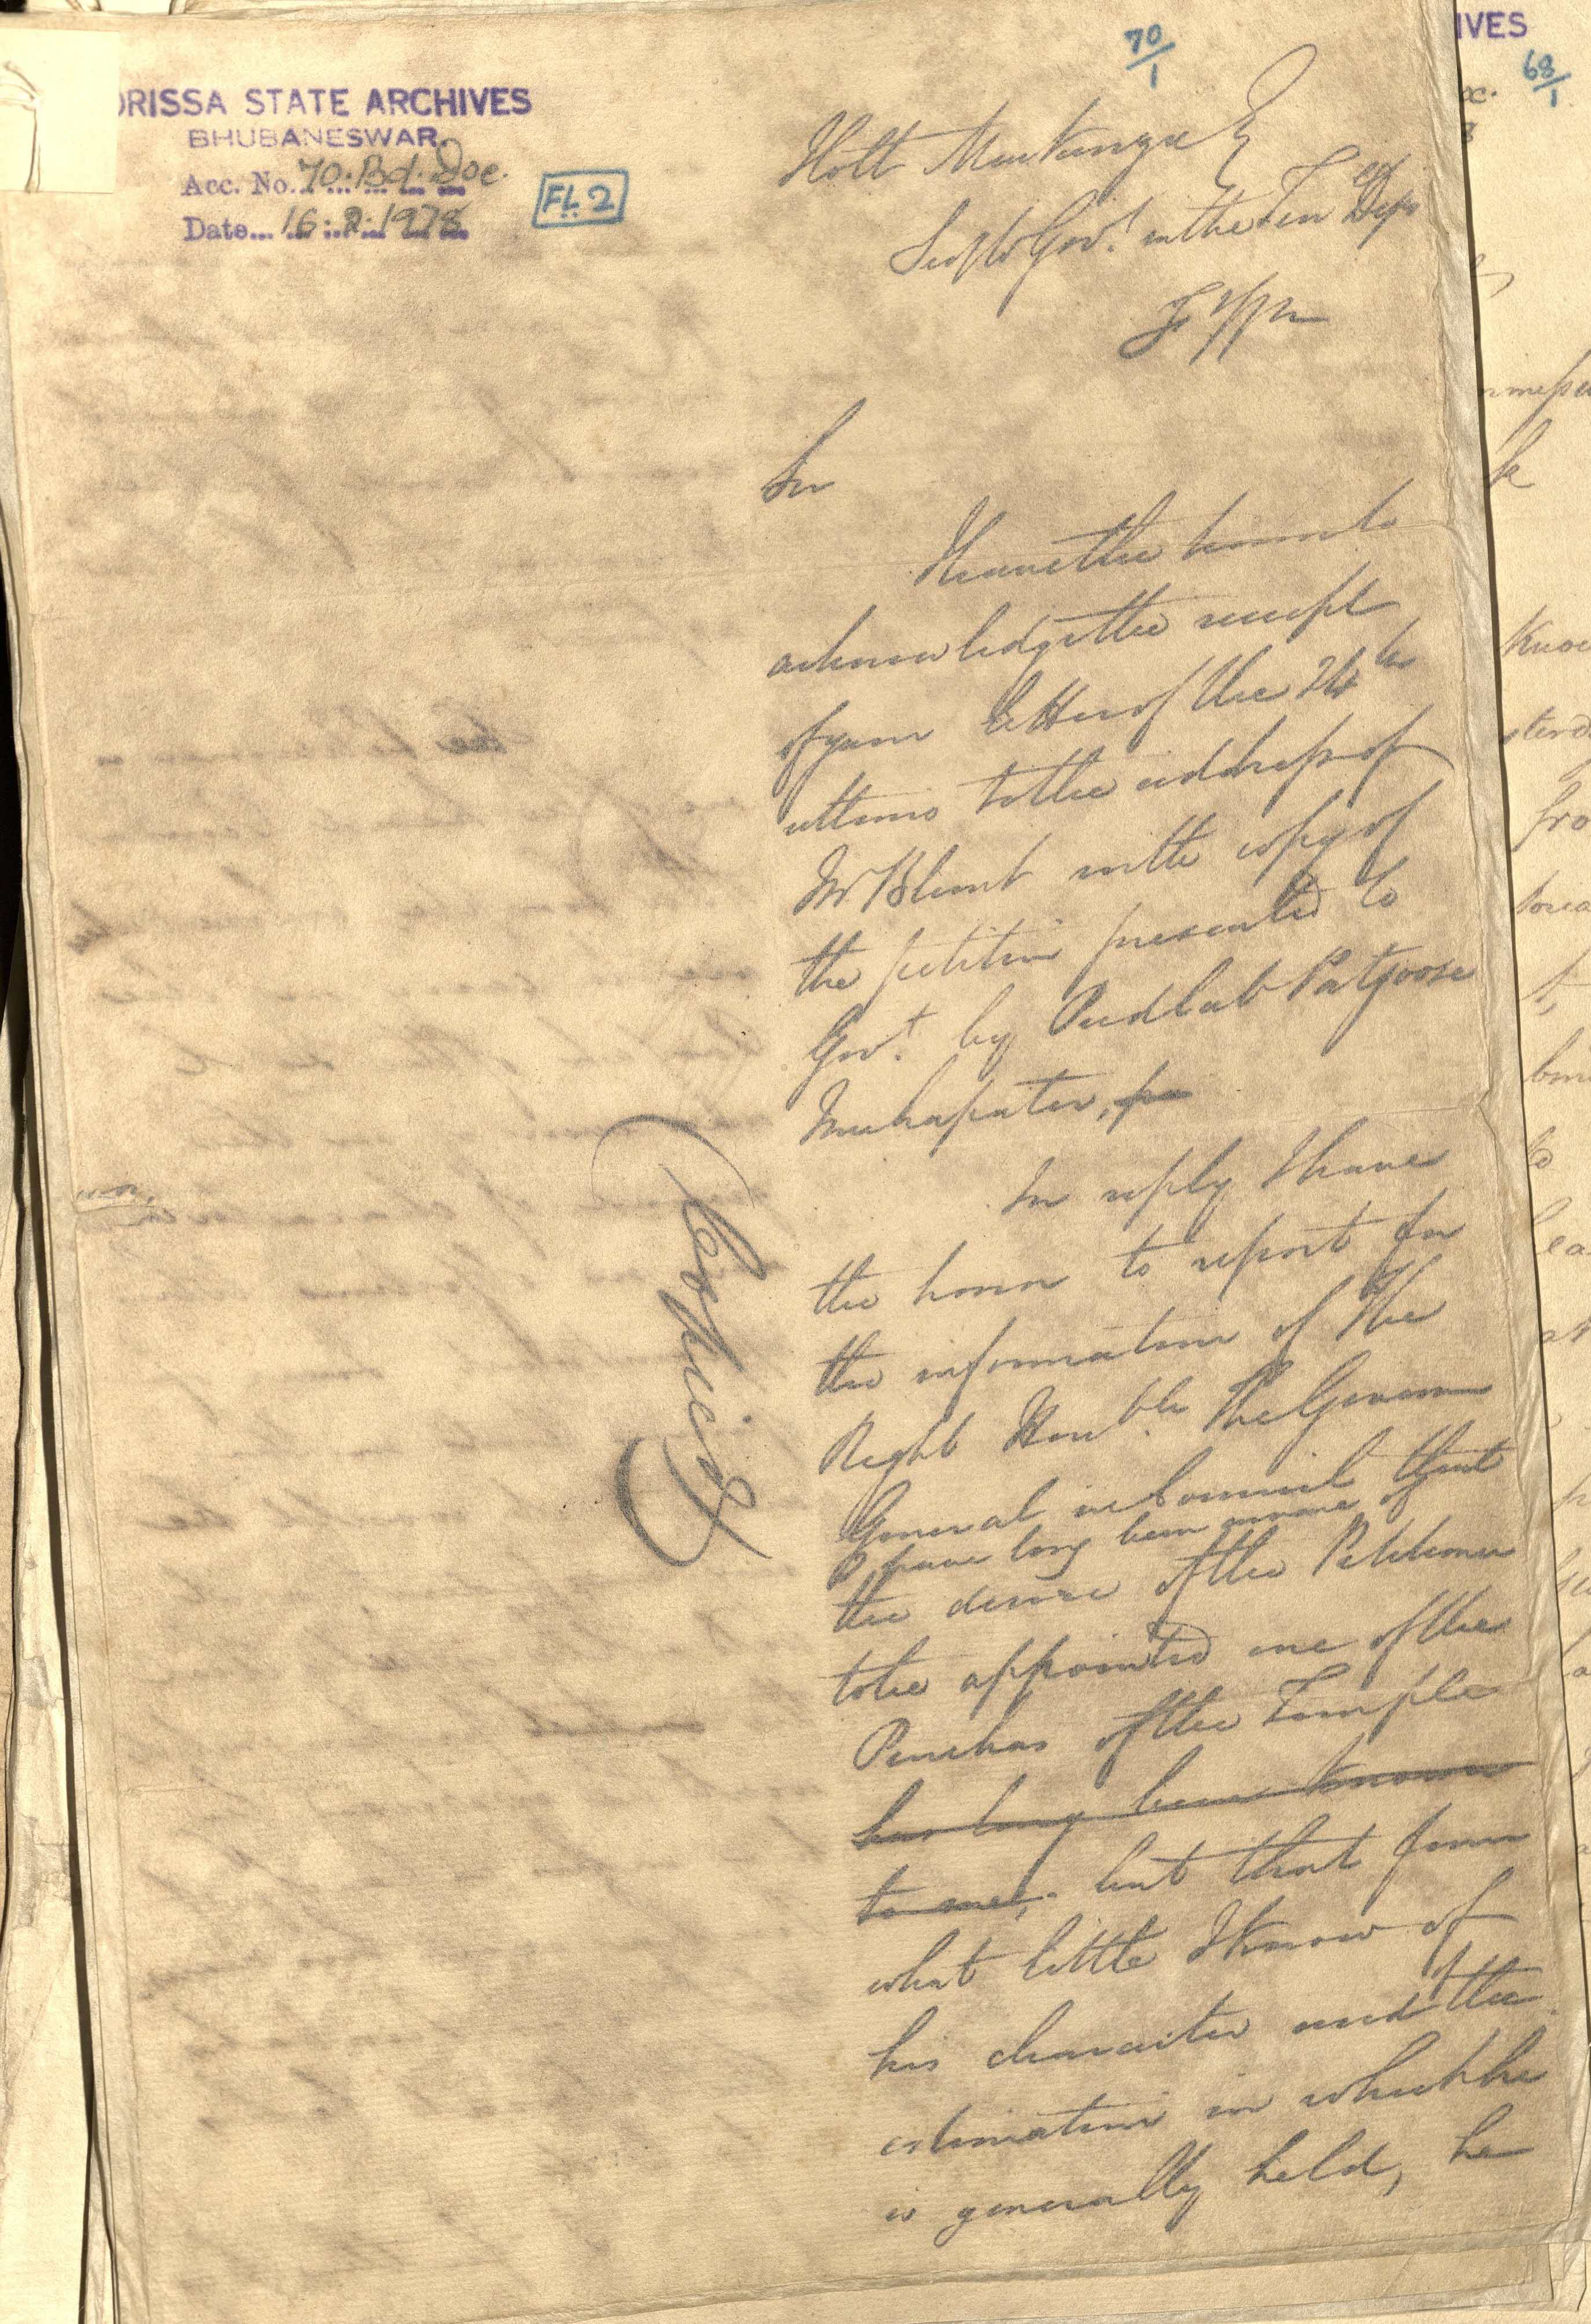 ORISSA STATE ARCHIVES
BHUBANESWAR.
Acc. No. 70. Bd. Doc.
Date 16.2.1978
FL 2
70/1
Holt Mackenzie E
Secy to Govt. in the Terr Dept
Ft Wm
Sir
I have the honor to
acknowledge the receipt
of your letter of the 24th
ultimo to the address of
Mr Blunt with copy of
the petition presented to
Govt. by Pudlab Patjoose
Muhapater,
In reply I have
the honor to report for
the information of the
Right Honble. The Governor
General in Council that
I have long been aware of
the desire of the Petitioner
to be appointed one of the
Purchas of the Temple
has long been known
to me, but that from
what little I know of
his character and of the
estimation in which he
is generally held, he
Copied
IVES
68/1